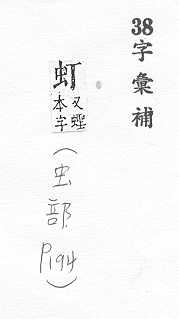 38字彙補
虰
又蟶
本字
(虫部P194)